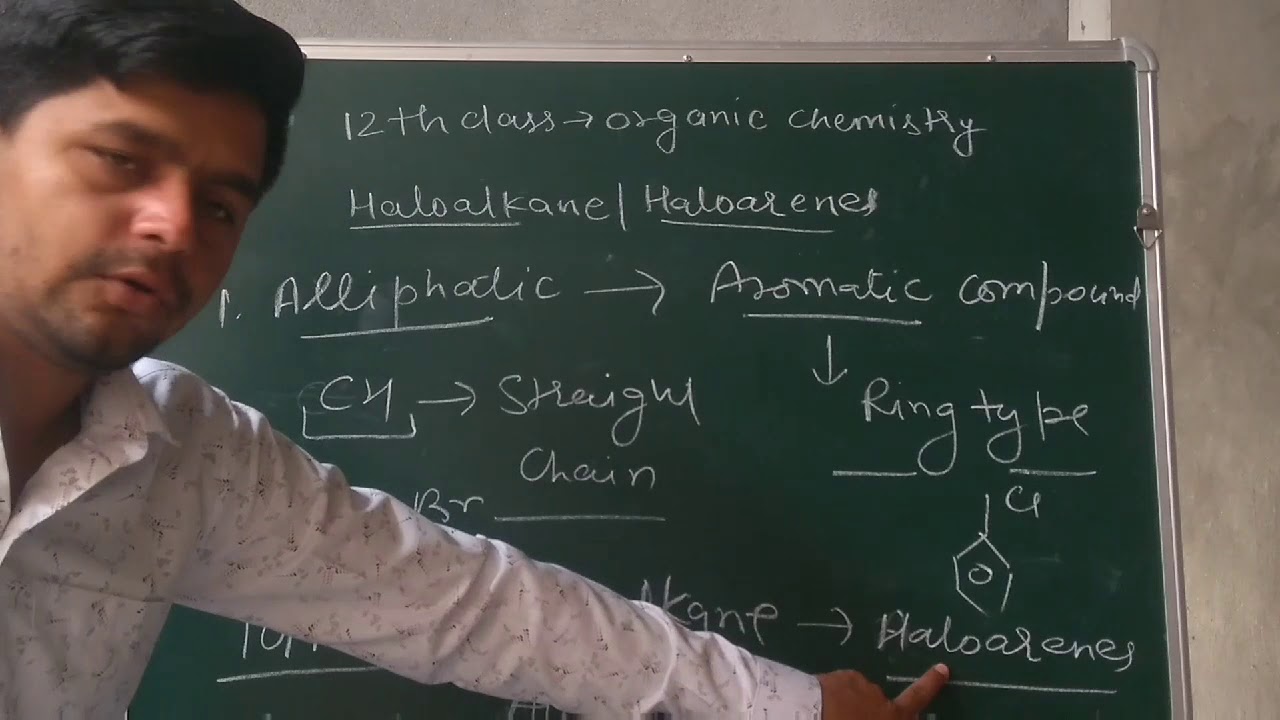 12th class → organic chemistry
Haloalkane / Haloarenes
1. Alliphatic → Aromatic compound
↓
CH → Straight Chain
Ring type
Br
Cl
→ Haloarenes